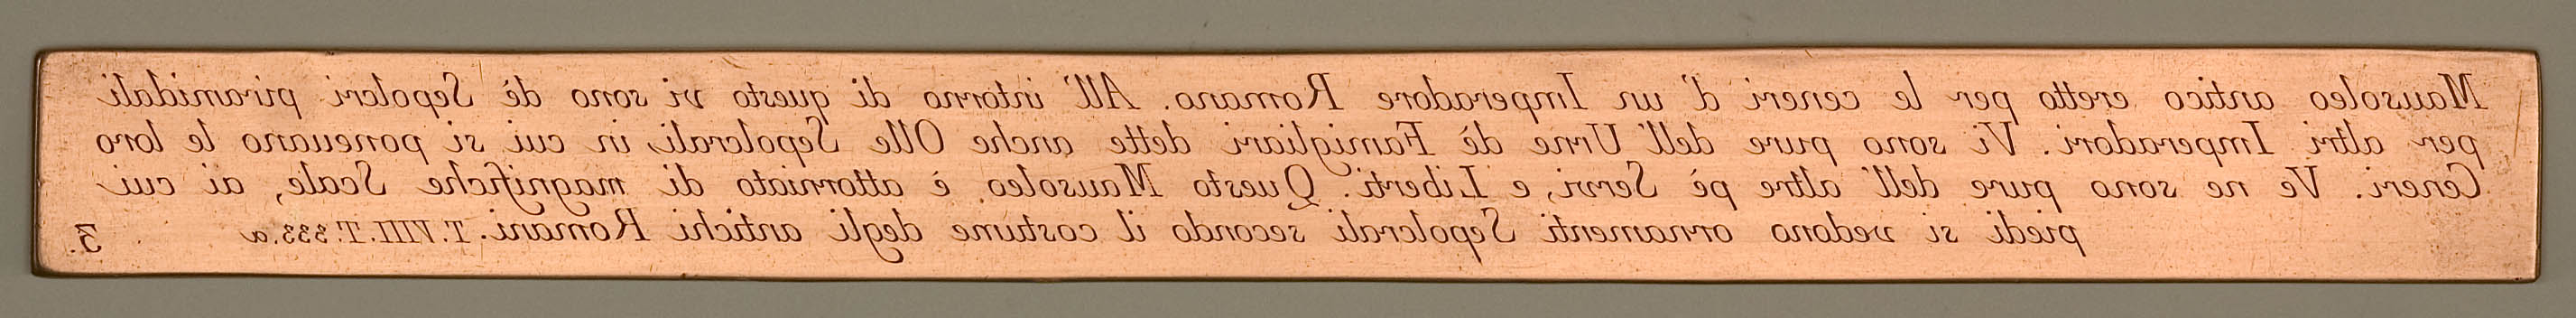 Mausoleo antico eretto per le ceneri d' un Imperadore Romano. All' intorno di questo vi sono dè Sepolcri piramidali
per altri Imperadori. Vi sono pure dell' Urne dè Famigliari dette anche Olle Sepolcrali, in cui si poneuano le loro
Ceneri. Ve ne sono pure dell' altre pè Servi, e Liberti. Questo Mausoleo è attorniato di magnifiche Scale, ai cui
piedi si vedono ornamenti Sepolcrali secondo il costume degli antichi Romani. T. VIII. T. 333. a 3.